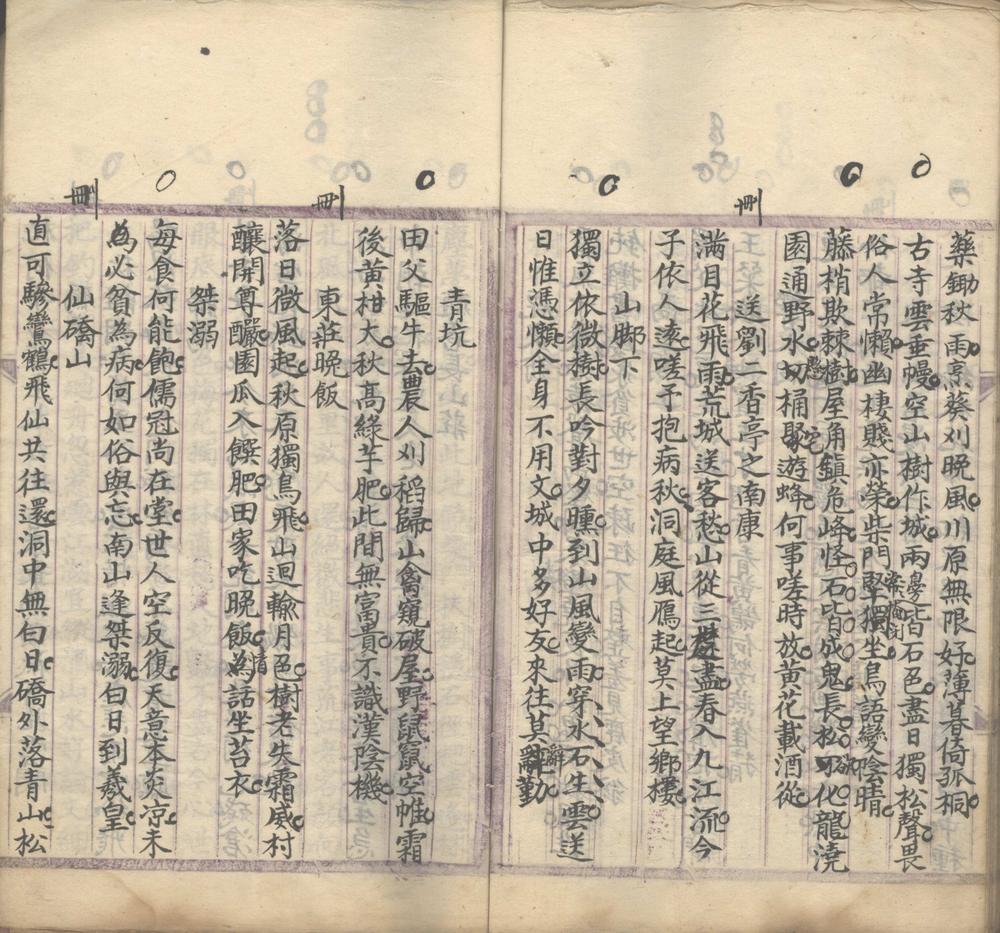 藥鋤秋雨烹葵刈晚風川原無限好薄暮倚孤桐
古寺雲垂幔空山樹作城兩邊白石色盡日獨松聲畏
俗人常懶幽棲賤亦榮柴門堅獨坐鳥語變陰晴
藤梢欺棘樹屋角鎮危峰怪石皆成鬼長松乃化龍澆
園通野水切桶聚遊蜂何事嗟時放黃花載酒從
送劉二香亭之南康
滿目花飛雨荒城送客愁山從三楚盡春入九江流今
子依人遠嗟予抱病秋洞庭風鴈起莫上望鄉樓
山腳下
獨立依微樹長吟對夕曛到山風變雨穿水石生雲送
日惟憑懶全身不用文城中多好友來往莫辭勤
青坑
田父驅牛去農人刈稻歸山禽窺破屋野鼠竄空帷霜
後黃柑大秋高綠芋肥此間無富貴不識漢陰機
東莊晚飯
落日微風起秋原獨鳥飛山迴輸月色樹老失霜威村
釀開尊釅園瓜入饌肥田家吃晚飯為話坐苔衣
桀溺
每食何能飽儒冠尚在堂世人空反復天意本炎涼未
為必貧為病何如俗與忘南山逢桀溺白日到羲皇
仙礄山
直可驂鸞鶴飛仙共往還洞中無白日礄外落青山松
刪
刪
刪